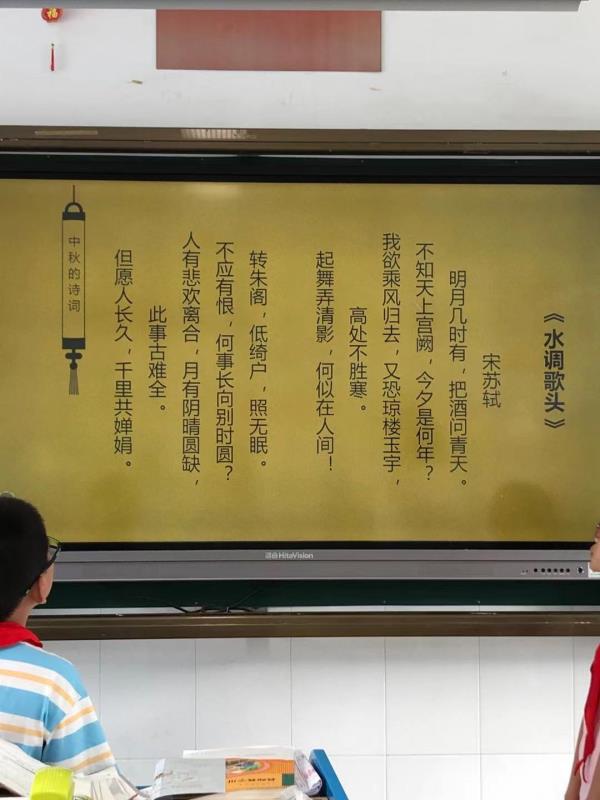 《水调歌头》
宋苏轼
明月几时有，把酒问青天。
不知天上宫阙，今夕是何年？
我欲乘风归去，又恐琼楼玉宇，
高处不胜寒。
起舞弄清影，何似在人间！
转朱阁，低绮户，照无眠。
不应有恨，何事长向别时圆？
人有悲欢离合，月有阴晴圆缺，
此事古难全。
但愿人长久，千里共婵娟。
中秋的诗词
HiteVision
福